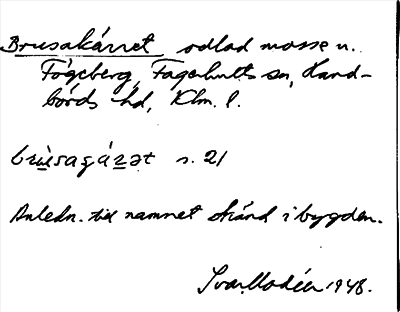 Brusakärret odlad mosse n.
Fågeberg, Fagerhults sn, Hand-
börds hd, Klm. l.
brùsaçárət s. 21
Anledn. till namnet okänd i bygden.
Ivar Modéer 1948.